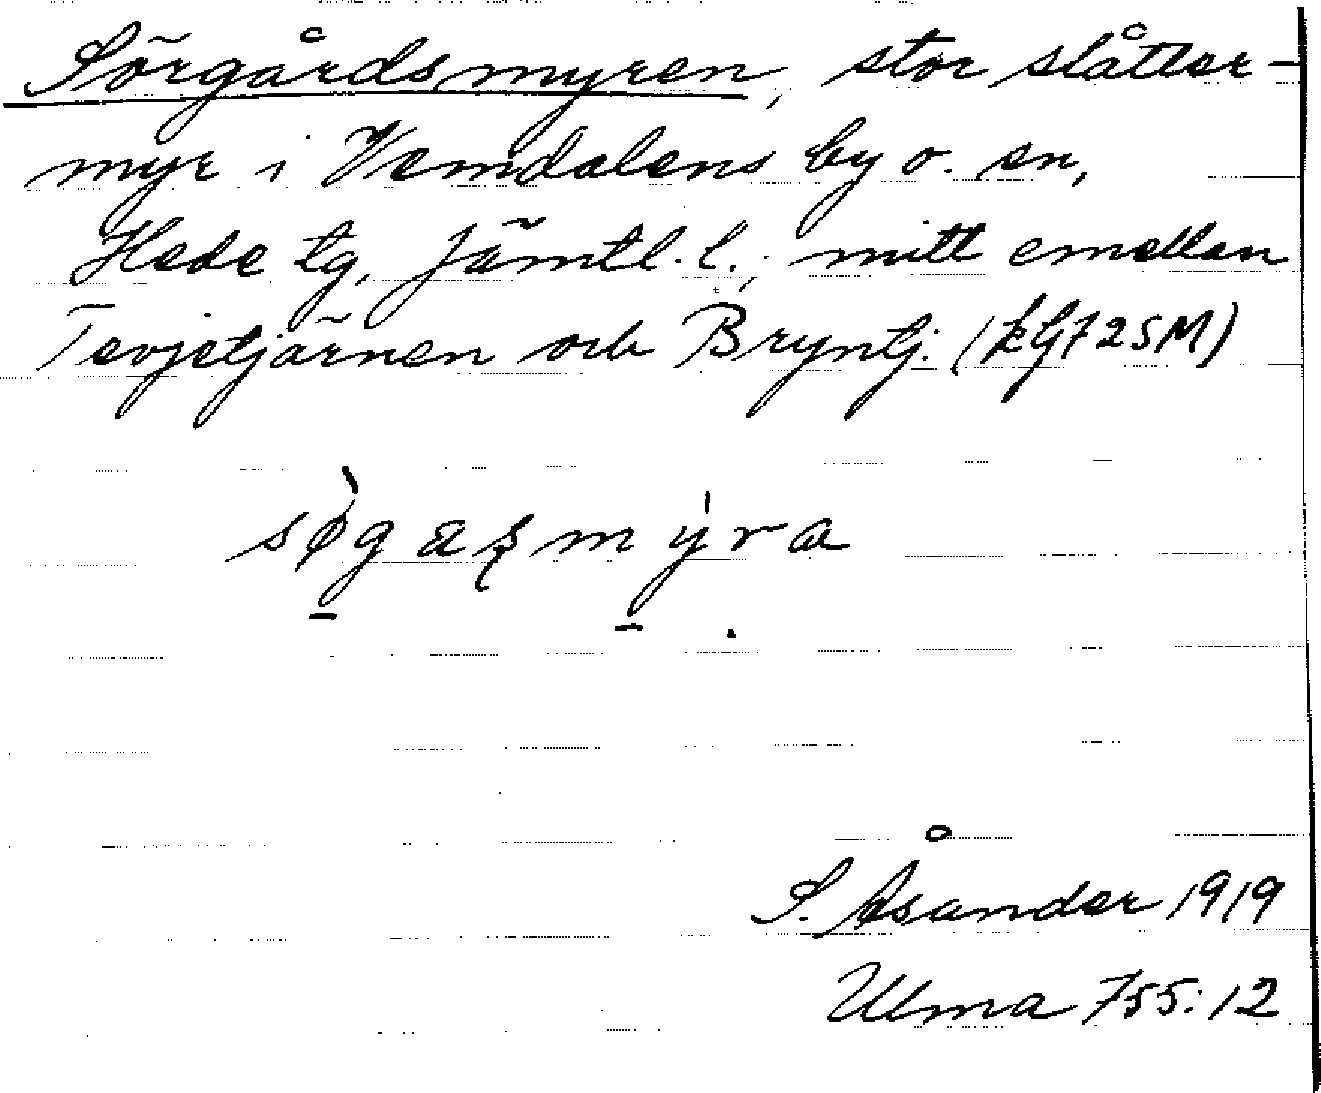 Sörgårdsmyren, stor slåtter-
myr i Vemdalens by o. sn,
Hede tg, Jämtl. l., mitt emellan
Tevjetjärnen och Bryntj. (kG72SM)
søgasmyra
S. Åsander 1919
Ulma 755:12